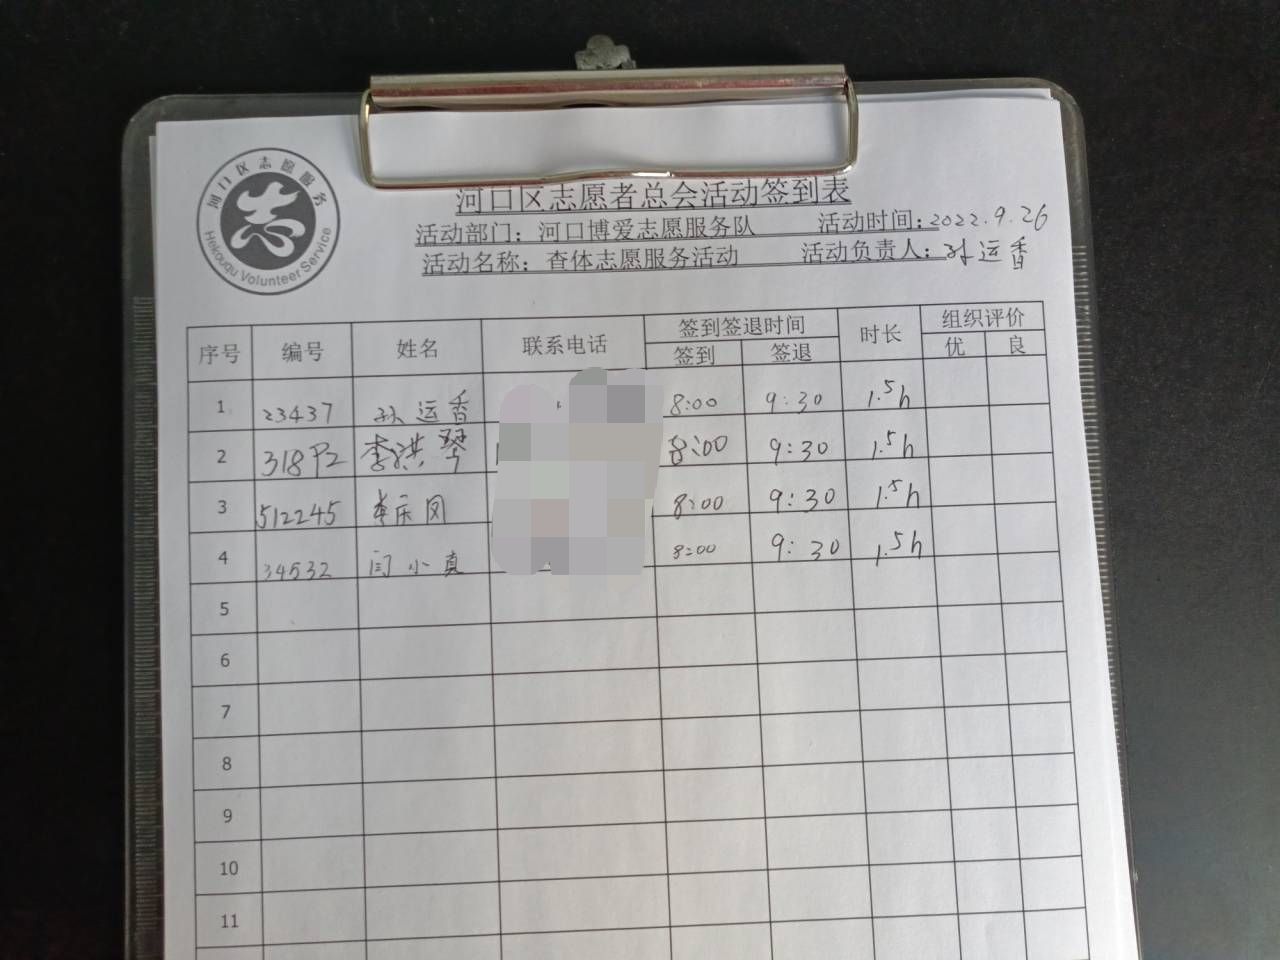 河口区志愿服务
志
Hekouqu Volunteer Service
河口区志愿者总会活动签到表
活动部门：河口博爱志愿服务队 活动时间：2022.9.26
活动名称：查体志愿服务活动 活动负责人：孙运香
序号 编号 姓名 联系电话 签到签退时间 时长 组织评价
签到 签退 优 良
1 23437 孙运香 8:00 9:30 1.5h
2 李洪琴 8:00 9:30 1.5h
3 512245 8:00 9:30 1.5h
4 34532 闫小真 8:00 9:30 1.5h
5
6
7
8
9
10
11